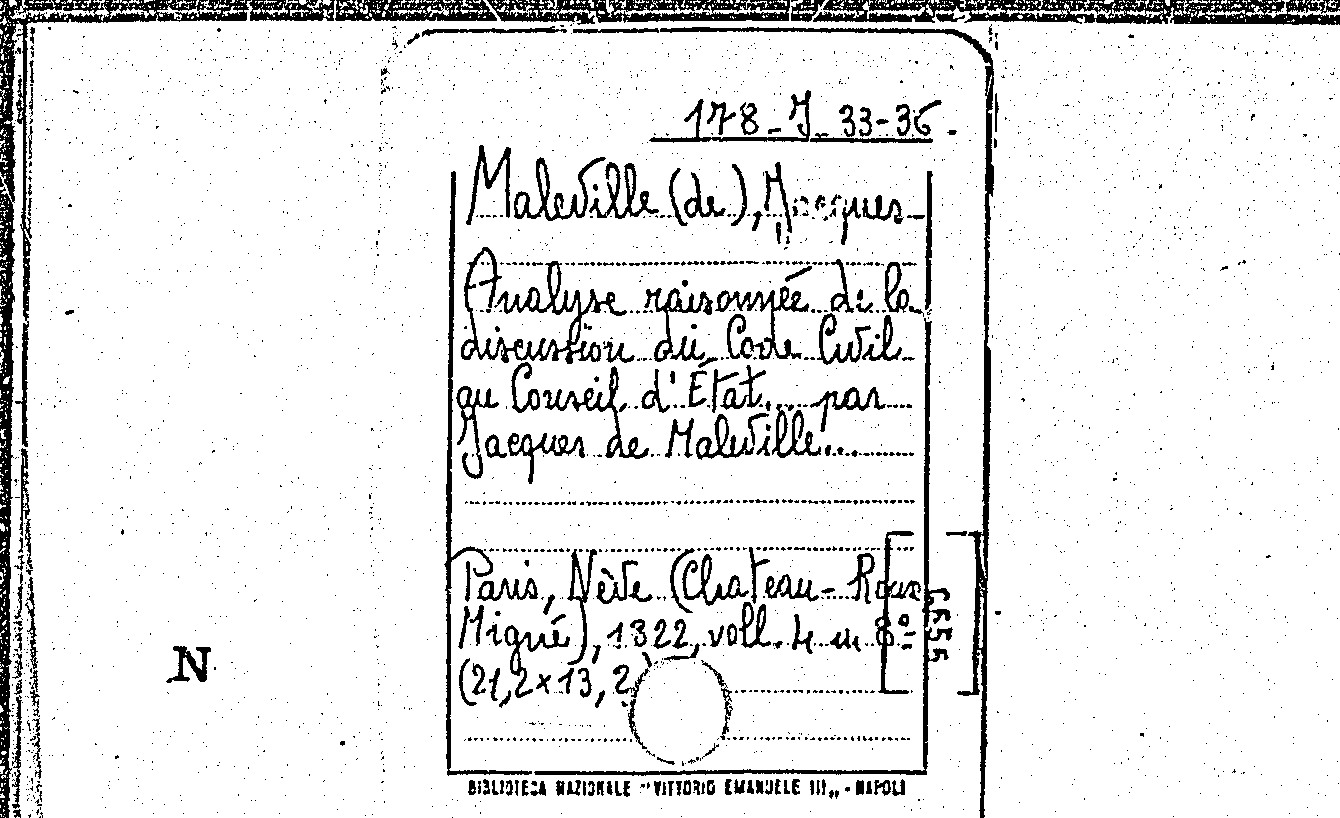 178-J-33-36.
Maleville (de), Jacques-
Analyse raisonnée de la
discussion du Code Civil
au Conseil d'État... par
Jacques de Maleville...
Paris, Nève (Chateau-Roux
Migné), 1822, voll. 4 in 8º-
(21,2x13,2)
6655
N
BIBLIOTECA NAZIONALE "VITTORIO EMANUELE III" - NAPOLI